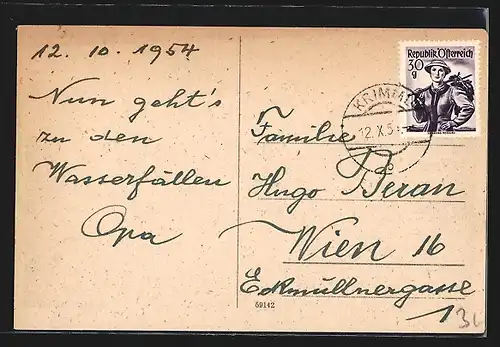 12. 10. 1954
Nun geht's
zu den
Wasserfällen
Opa
Republik Österreich
30
g
KRIMML
12.X.5
Familie
Hugo Beran
Wien 16
Eckmüllnergasse
1
59142